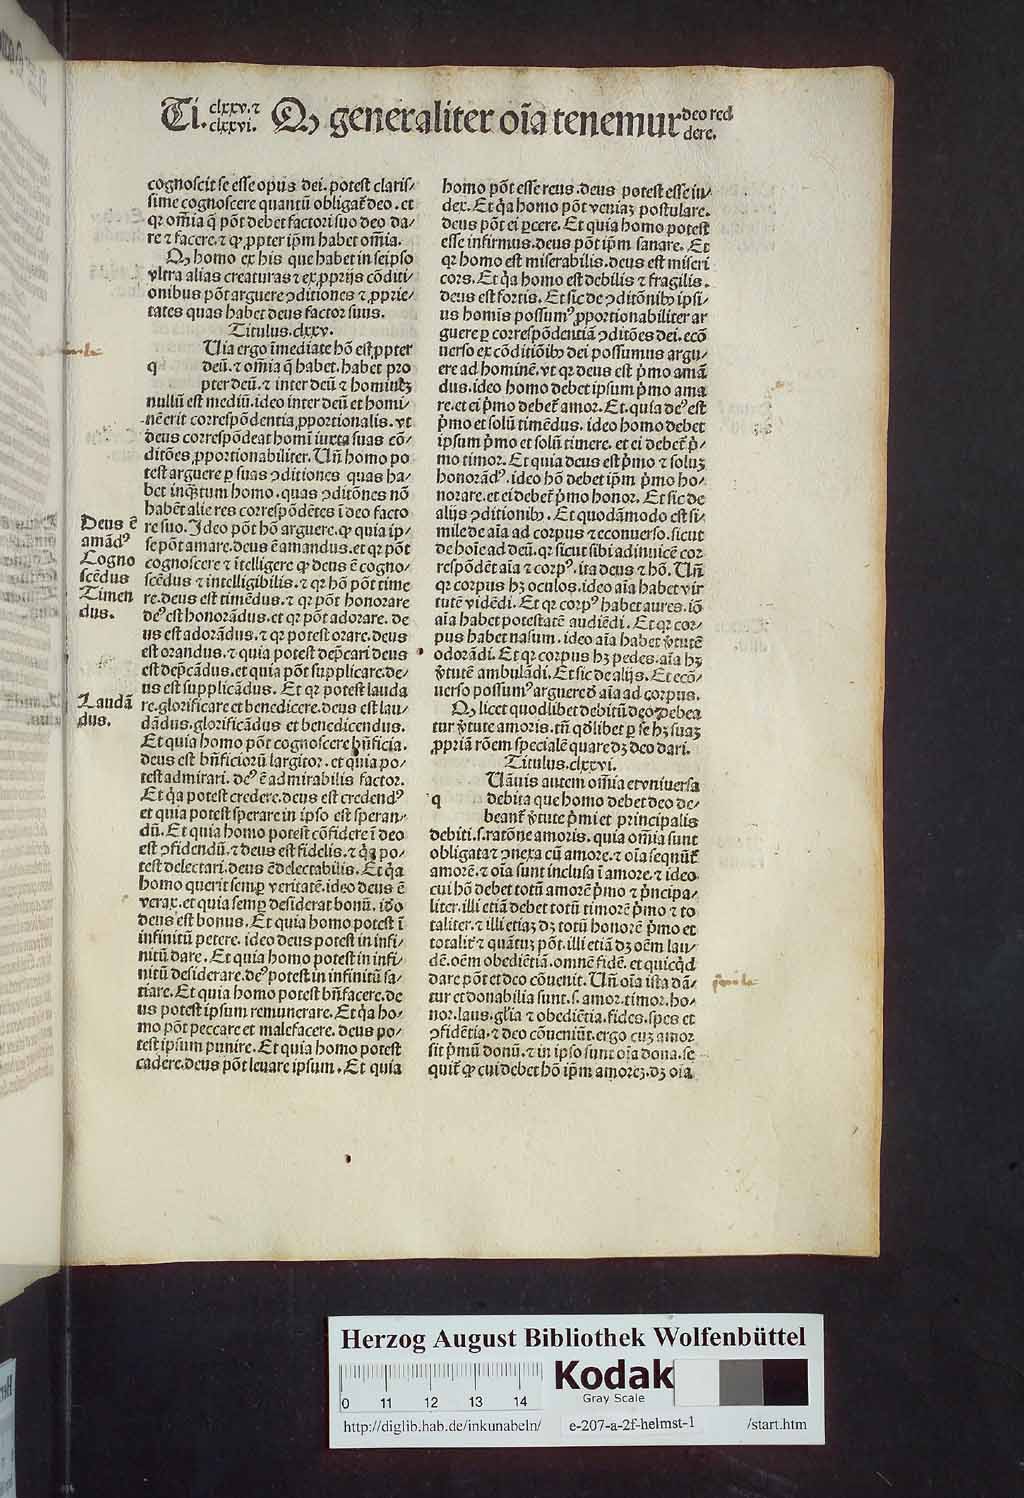 Ti. clxxv.⁊ clxxvi. Qꝫ generaliter oīa tenemur deo red
dere.
cognoscit se esse opus dei. potest claris⸗
sime cognoscere quantū obligat̄ deo. et
qꝛ om̄ia q̄ pōt debet factori suo deo da⸗
re ⁊ facere. ⁊ ꝙ ꝓpter ip̄m habet om̄ia.
Qꝫ homo ex his que habet in seipso
vltra alias creaturas ⁊ ex ꝓprijs cōditi⸗
onibus pōt arguere ꝯditiones ⁊ ꝓprie⸗
tates quas habet deus factor suus.
Titulus.clxxv.
q Uia ergo īmediate hō est ꝓpter
deū. ⁊ om̄ia q̄ habet. habet pro
pter deū. ⁊ inter deū ⁊ hominēꝫ
nullū est mediū. ideo inter deū et homi⸗
nē erit correspōdentia ꝓportionalis. vt
deus correspōdeat homī iuxta suas cō⸗
ditōes ꝓportionabiliter. Un̄ homo po
test arguere ꝑ suas ꝯditiones quas ha⸗
bet inqᷓꝫtum homo. quas ꝯditōnes nō
habēt alie res correspōdētes ī deo facto
re suo. Ideo pōt hō arguere. ꝙ quia ip⸗
se pōt amare. deus ē amandus. et qꝛ pōt
cognoscere ⁊ ītelligere ꝙ deus ē cogno⸗
scēdus ⁊ intelligibilis. ⁊ qꝛ hō pōt time
re. deus est timēdus. ⁊ qꝛ pōt honorare
deꝰ est honorādus. et qꝛ pōt adorare. de
us est adorādus. ⁊ qꝛ potest orare. deus
est orandus. ⁊ quia potest dep̄cari deus
est dep̄cādus. et quia pōt supplicare. de⸗
us est supplicādus. Et qꝛ potest lauda
re. glorificare et benedicere. deus est lau⸗
dādus. glorificādus et benedicendus.
Et quia homo pōt cognoscere bn̄ficia.
deus est bn̄ficiorū largitor. et quia po⸗
test admirari. deꝰ ē admirabilis factor.
Et q̇a potest credere. deus est credendꝰ
et quia potest sperare in ipso est speran⸗
dū. Et quia homo potest cōfidere ī deo
est ꝯfidendū. ⁊ deus est fidelis. ⁊ q̇a po⸗
test delectari. deus ē delectabilis. Et q̇a
homo querit semꝑ veritatē. ideo deus ē
verax. et quia semꝑ desiderat bonū. ido
deus est bonus. Et quia homo potest ī
infinitū petere. ideo deus potest in infi⸗
nitū dare. Et quia homo potest in infi⸗
nitū desiderare. deꝰ potest in infinitū sa⸗
tiare. Et quia homo potest bn̄facere. de
us potest ipsum remunerare. Et q̇a ho⸗
mo pōt peccare et malefacere. deus po⸗
test ipsum punire. Et quia homo potest
cadere. deus pōt leuare ipsum. Et quia
Deus ē
amādꝰ
Cogno
scēdus
Timen
dus.
Laudā
dus.
homo pōt esse reus. deus potest esse iu⸗
dex. Et q̇a homo pōt veniaꝫ postulare.
deus pōt ei ꝑcere. Et quia homo potest
esse infirmus. deus pōt ip̄m sanare. Et
qꝛ homo est miserabilis. deus est miseri
cors. Et q̇a homo est debilis ⁊ fragilis.
deus est fortis. Et sic de ꝯditōnibꝫ ipsi⸗
us homīs possumꝰ ꝓportionabiliter ar
guere ꝑ correspōdentiā ꝯditōes dei. ecō
uerso ex cōditiōibꝫ dei possumus argu⸗
ere ad hominē. vt qꝛ deus est p̄mo amā
dus. ideo homo debet ipsum p̄mo ama
re. et ei p̄mo debet̄ amor. Et. quia deꝰ est
p̄mo et solū timēdus. ideo homo debet
ipsum p̄mo et solū timere. et ei debet̄ p̄⸗
mo timor. Et quia deus est p̄mo ⁊ soluꝫ
honorādꝰ. ideo hō debet ip̄m p̄mo ho⸗
norare. et ei debet̄ p̄mo honor. Et sic de
alijs ꝯditionibꝫ. Et quodāmodo est si⸗
mile de aīa ad corpus ⁊ econuerso. sicut
de hoīe ad deū. qꝛ sicut sibi adinuicē cor
respōdēt aīa ⁊ corpꝰ. ita deus ⁊ hō. Un̄
qꝛ corpus hꝫ oculos. ideo aīa habet vir
tutē vidēdi. Et qꝛ corpꝰ habet aures. iō
aīa habet potestatē audiēdi. Et qꝛ cor⸗
pus habet nasum. ideo aīa habet v̄tutē
odorādi. Et qꝛ corpus hꝫ pedes. aīa hꝫ
v̄tutē ambulādi. Et sic de alijs. Et ecō⸗
uerso possumꝰ arguere d̄ aīa ad corpus.
Qꝫ licet quodlibet debitū deo debea
tur v̄tute amoris. tn̄ qd̄libet ꝑ se hꝫ suaꝫ
ꝓpriā rōem specialē quare dꝫ deo dari.
Titulus.clxxvi.
q Uāuis autem om̄ia et vniuersa
debita que homo debet deo de⸗
beant̄ v̄tute p̄mi et principalis
debiti. s. ratōne amoris. quia om̄ia sunt
obligata ⁊ ꝯnexa cū amore. ⁊ oīa sequūt̄
amorē. ⁊ oīa sunt inclusa ī amore. ⁊ ideo
cui hō debet totū amorē p̄mo ⁊ p̄ncipa⸗
liter. illi etiā debet totū timorē p̄mo ⁊ to
taliter. ⁊ illi etiaꝫ dꝫ totū honorē p̄mo et
totalit̄ ⁊ quātuꝫ pōt. illi etiā dꝫ oēm lau⸗
dē. oēm obediētiā. omnē fidē. et quicqd̄
dare pōt et deo cōuenit. Un̄ oīa ista dā⸗
tur et donabilia sunt. s. amor. timor. ho⸗
nor. laus. gl̄ia ⁊ obediētia. fides. spes et
ꝯfidētia. ⁊ deo cōueniūt. ergo cuꝫ amor
sit p̄mū donū. ⁊ in ipso sunt oīa dona. se
quit̄ ꝙ cui debet hō ip̄m amoreꝫ. dꝫ oīa
Herzog August Bibliothek Wolfenbüttel
0 11 12 13 14
Kodak
Gray Scale
http://diglib.hab.de/inkunabeln/ e-207-a-2f-helmst-1 /start.htm